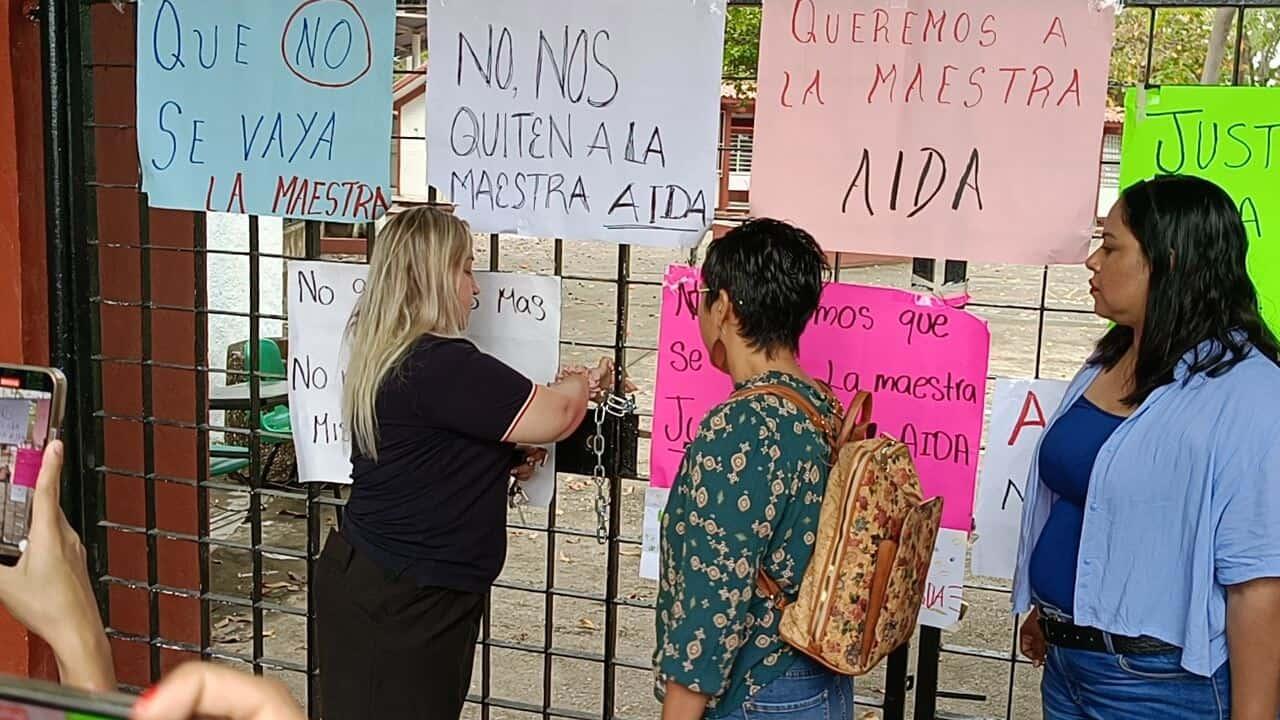 QUE NO
SE VAYA
LA MAESTRA
NO, NOS
QUITEN A LA
MAESTRA AIDA
QUEREMOS A
LA MAESTRA
AIDA
JUST
A
No
MAS
No
Mi
que
Se
La maestra
AIDA
A